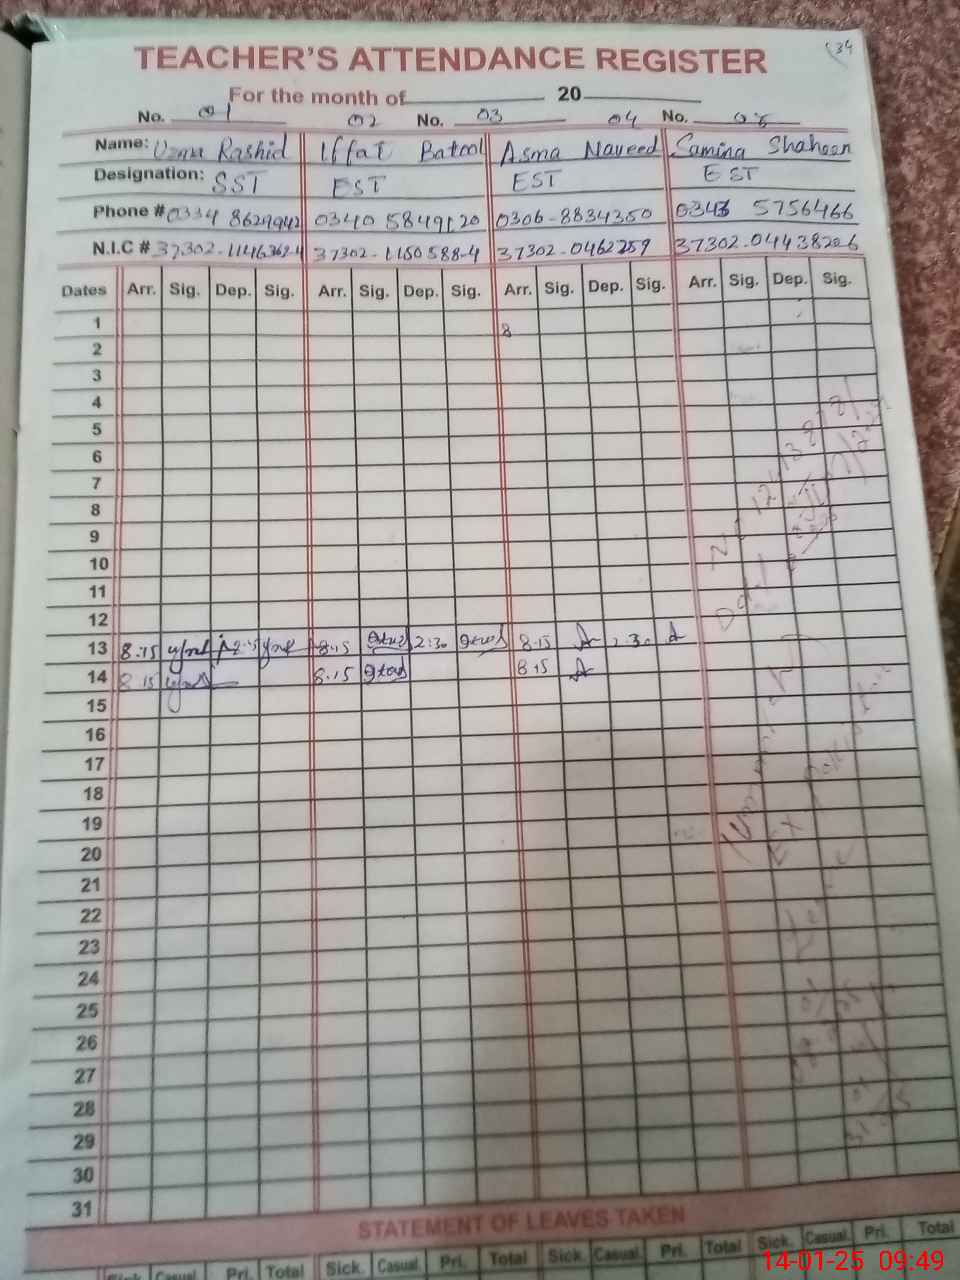 34
TEACHER'S ATTENDANCE REGISTER
For the month of 20
No. 01 02 No. 03 04 No.
Name: Uzma Rashid Iffat Batool Asma Naveed Samina Shaheen
Designation: SST EST EST EST
Phone # 0334 8629942 0340 5849120 0306-8834350 0343 5756466
N.I.C # 37302-1146362-4 37302-1150588-4 37302-0462259 37302-0443820-6
Dates Arr. Sig. Dep. Sig. Arr. Sig. Dep. Sig. Arr. Sig. Dep. Sig. Arr. Sig. Dep. Sig.
1 8
2
3
4
5
6
7
8
9
10
11
12
13 8.15 8.15 2:30 8.15 2.30
14 8.15 8.15 8.15
15
16
17
18
19
20
21
22
23
24
25
26
27
28
29
30
31
STATEMENT OF LEAVES TAKEN
Sick. Casual. Pri. Total Sick. Casual. Pri. Total Sick. Casual. Pri. Total Sick. Casual. Pri. Total
14-01-25 09:49